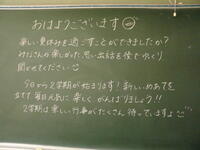 おはようございます
楽しい夏休みを過ごすことができましたか？
みなさんの楽しかった思い出話を後でゆっくり
聞かせてください
今日から2学期が始まります！新しいめあてを
立てて毎日元気に楽しくがんばりましょう！！
2学期は楽しい行事がたくさん待っていますよ